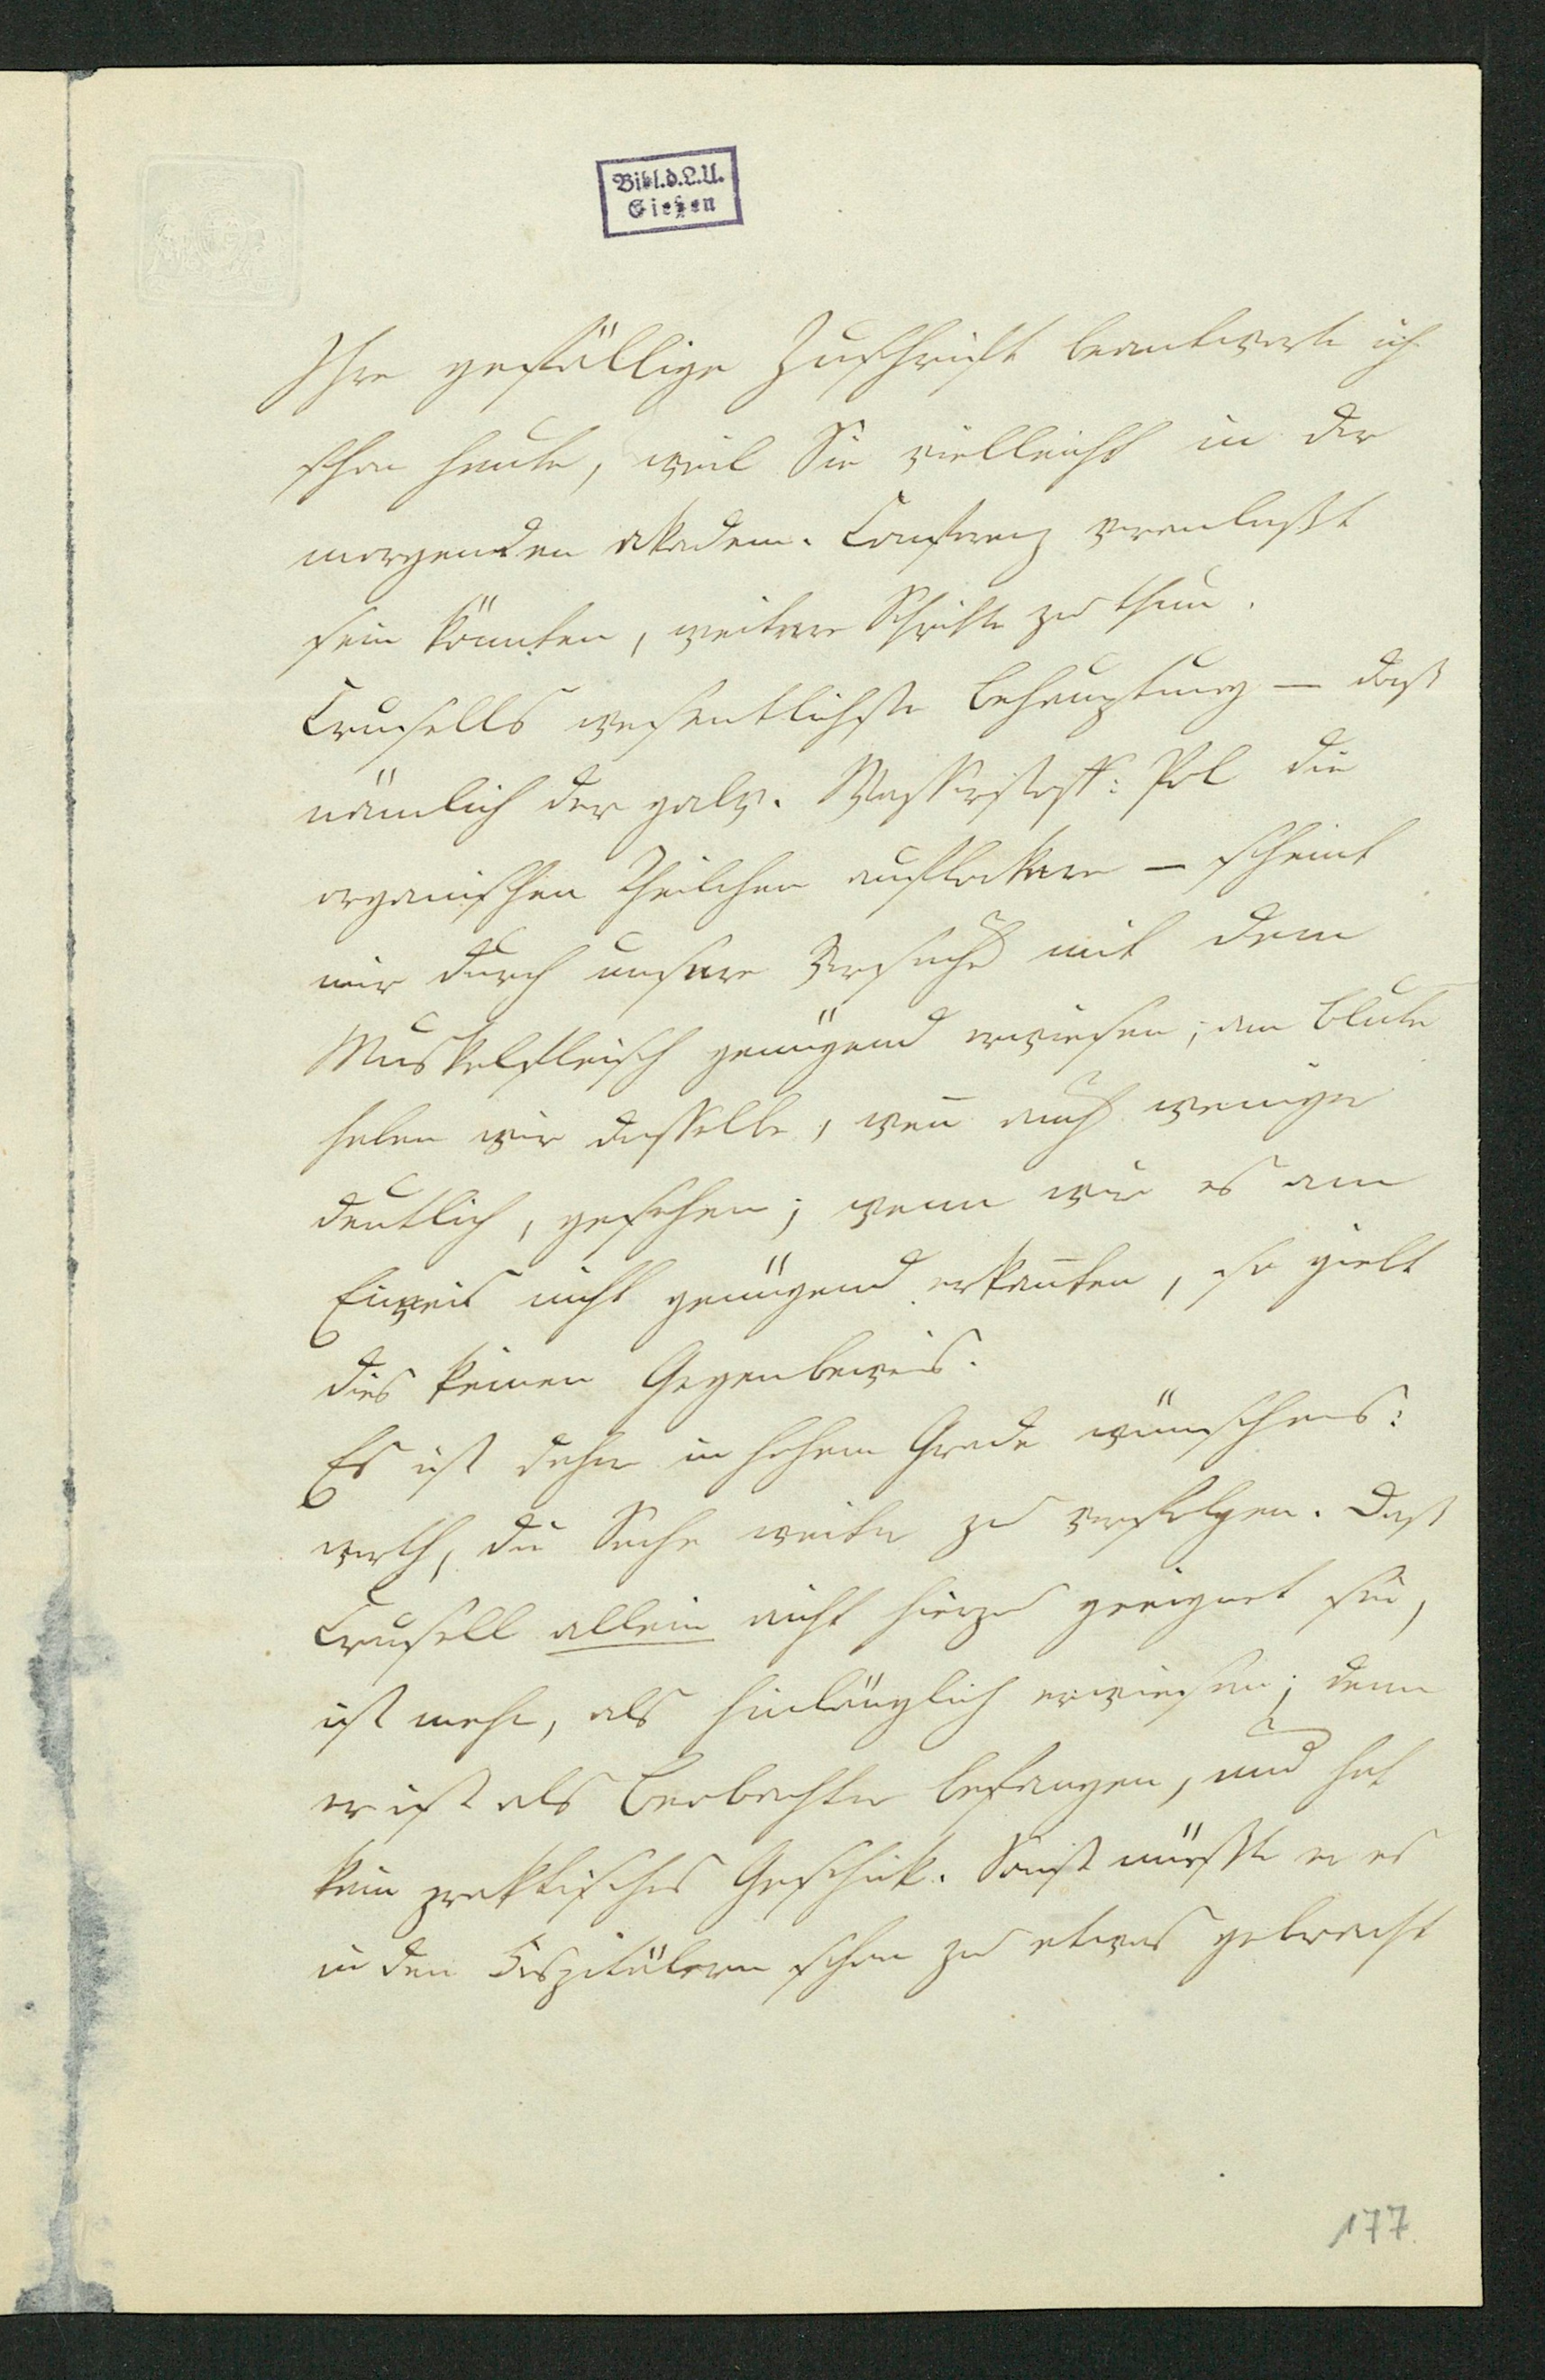 Bibl.d.L.U.
Gießen
Ihre gefällige Zuschrift beantworte ich
schon heute, weil Sie vielleicht in der
morgenden akadem. Conferenz veranlaßt
sein könnten, weitere Schritte zu thun.
Crusells wesentlichste Behauptung — daß
nämlich der galv. Wasserstoff: Pol die
organischen Theilchen auflockere — scheint
mir durch unsere Versuche mit dem
Muskelfleisch genügend erwiesen; am Blute
haben wir dasselbe, weñ auch weniger
deutlich, gesehen; wenn wir es am
Eiweis nicht genügend erkañten, so gielt
dies keinen Gegenbeweis.
Es ist daher in hohem Grade wünschens:
werth, die Sache weiter zu verfolgen. Daß
Crusell allein nicht hierzu geeignet sei,
ist mehr, als hinlänglich erwiesen; denn
er ist als Beobachter befangen, und hat
kein praktisches Geschick. Sonst müßte er es
in den Hospitälern schon zu etwas gebracht
177